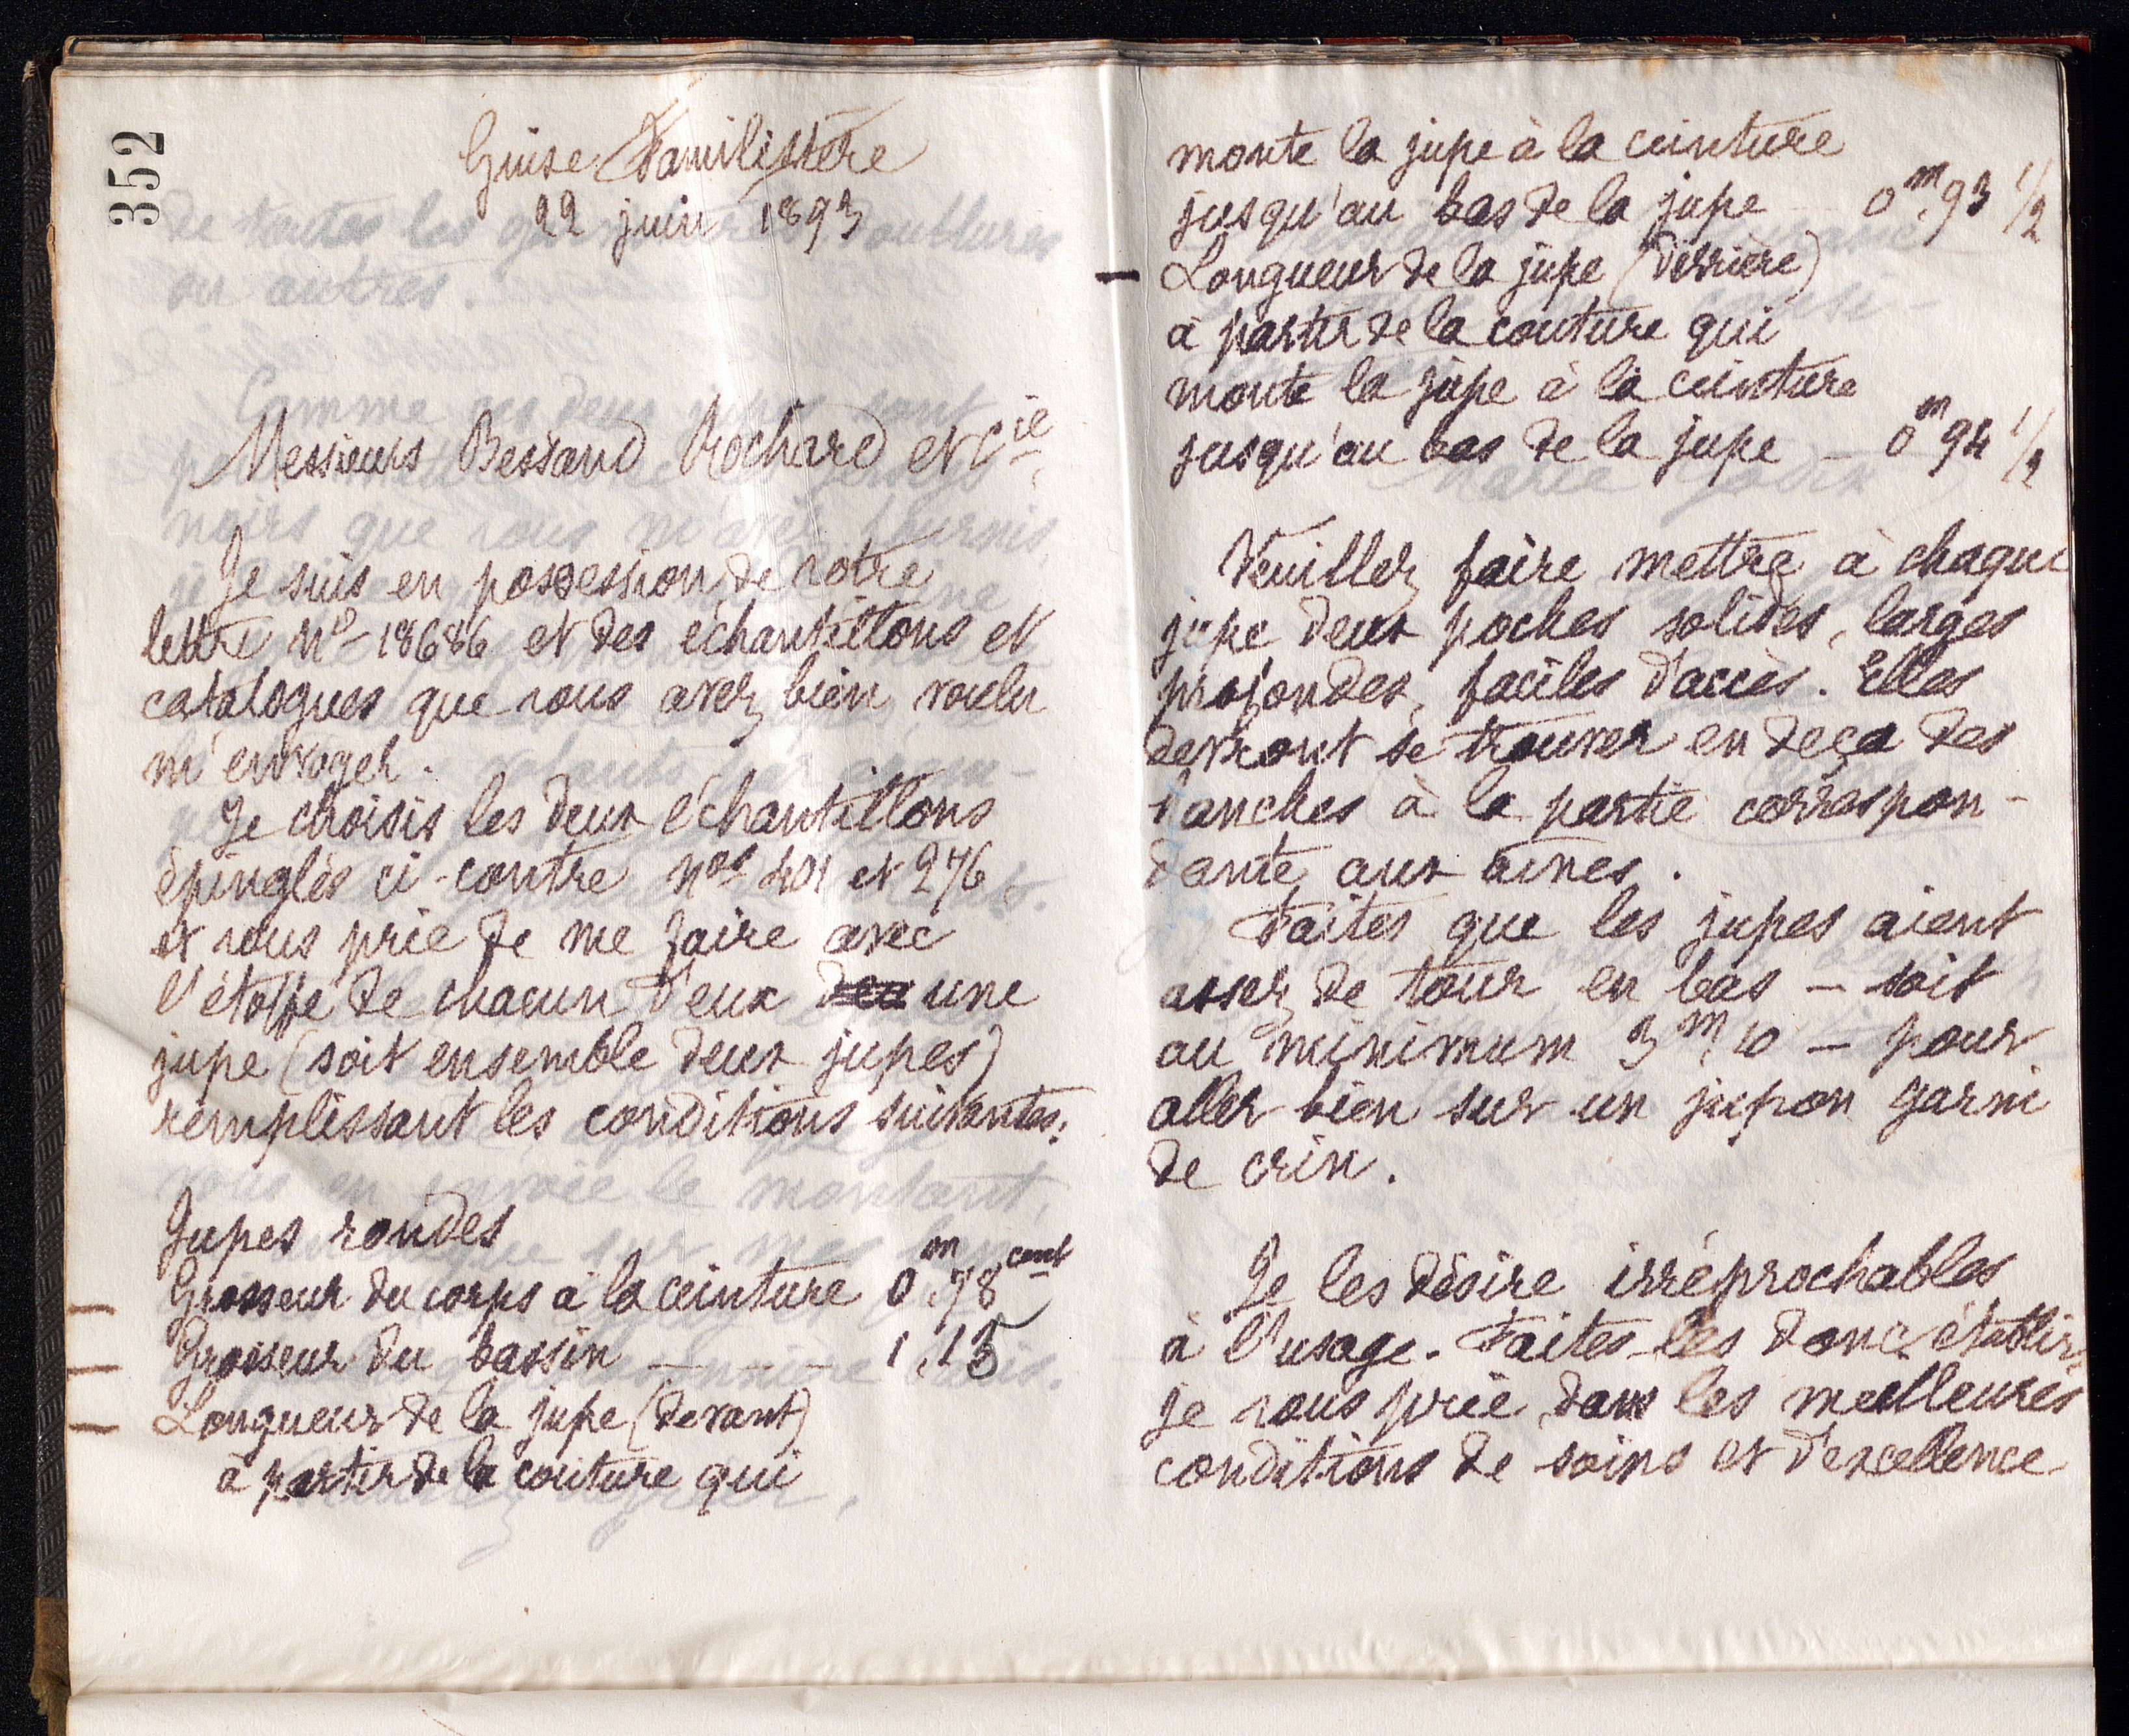 352
Guise Familistère
22 juin 1893
Messieurs Bessand Rochard et Cie
Je suis en possession de votre
lettre no 18686 et des échantillons et
catalogues que vous avez bien voulu
m'envoyer.
Je choisis les deux échantillons
épinglés ci-contre nos 401 et 276
et vous prie de me faire avec
l'étoffe de chacun d'eux une
jupe (soit ensemble deux jupes)
remplissant les conditions suivantes:
Jupes rondes
Grosseur du corps à la ceinture 0m,78 cent
Grosseur du bassin — — — 1,15
Longueur de la jupe (devant)
à partir de la couture qui
monte la jupe à la ceinture
jusqu'au bas de la jupe 0m,93 1/2
Longueur de la jupe (derrière)
à partir de la couture qui
monte la jupe à la ceinture
jusqu'au bas de la jupe — 0m 94 1/2
Veuillez faire mettre à chaque
jupe deux poches solides, larges
profondes, faciles d'accès. Elles
devront se trouver en deça des
hanches à la partie correspon-
dante aux aines.
Faites que les jupes aient
assez de tour en bas — soit
au minimum 3m,10 — pour
aller bien sur un jupon garni
de crin.
Je les désire irréprochables
à l'usage. Faites-les donc établir,
je vous prie, dans les meilleures
conditions de soins et d'excellence